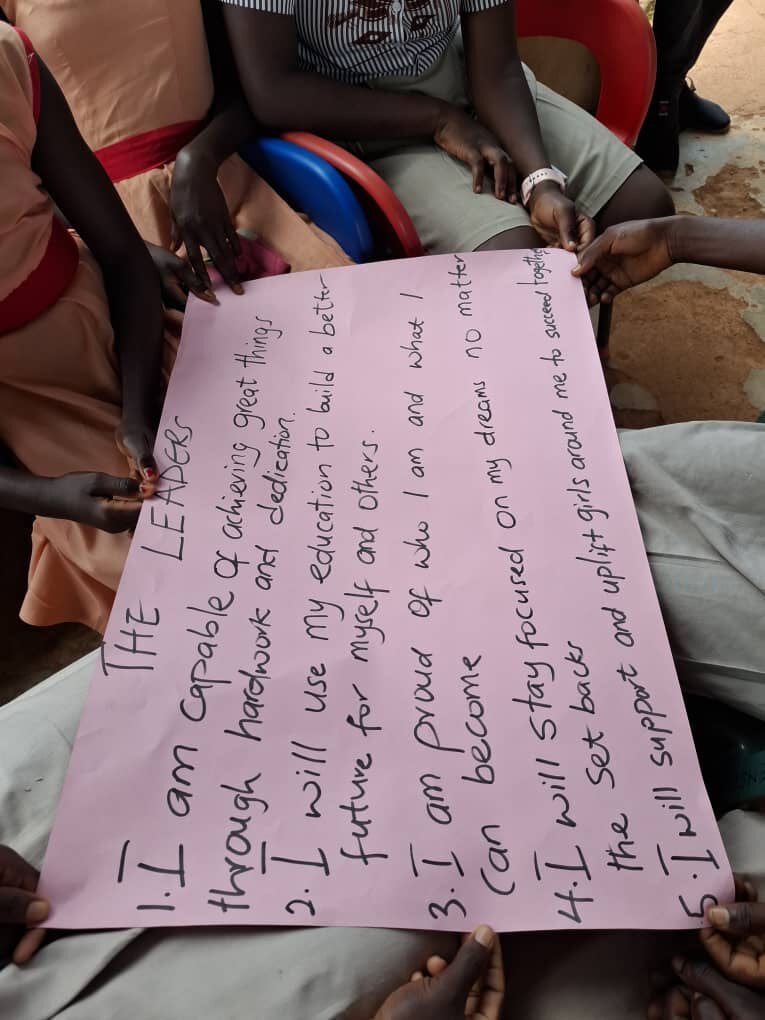 THE LEADERS
1. I am capable of achieving great things
through hardwork and dedication.
2. I will use my education to build a better
future for myself and others.
3. I am proud of who I am and what I
can become
4. I will stay focused on my dreams no matter
the set backs
5. I will support and uplift girls around me to succeed together